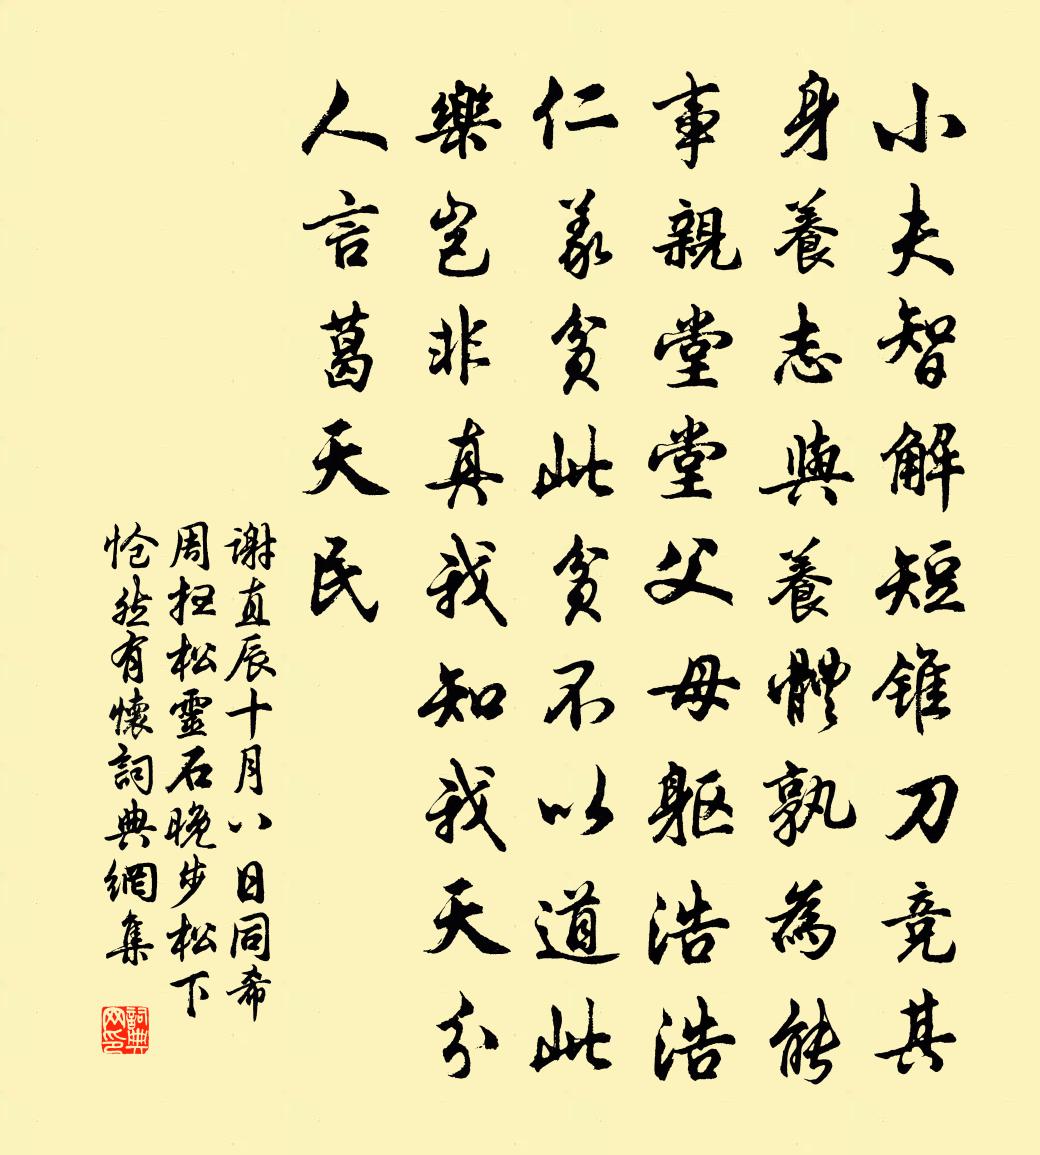 小夫智解短錐刀竞其
身養志與養體孰為能
事親堂堂父母軀浩浩
仁義貧此貧不以道此
樂岂非真我知我天分
人言葛天民
谢直辰十月八日同希
周扫松靈石晚步松下
怆然有懷詞典網集
詞典网印